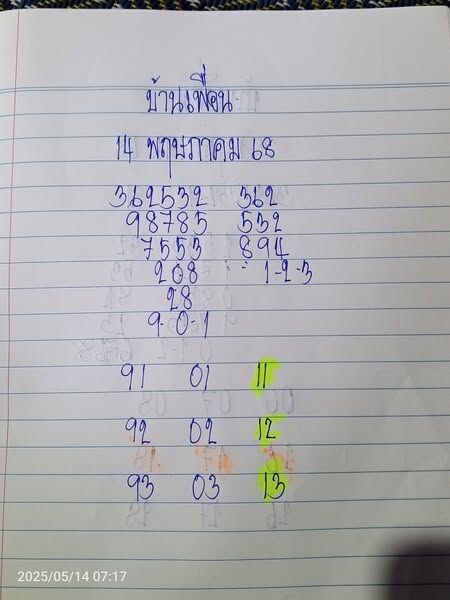 บ้านเพื่อน
14 พฤษภาคม 68
362532 362
98785 532
7553 894
208 1-2-3
28
9-0-1
91 01 11
92 02 12
93 03 13
2025/05/14 07:17